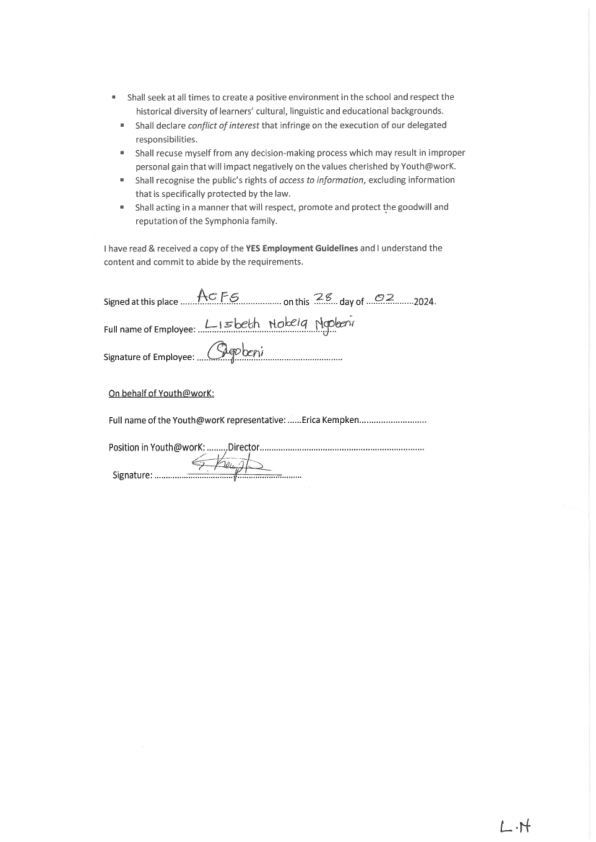 ▪ Shall seek at all times to create a positive environment in the school and respect the
historical diversity of learners' cultural, linguistic and educational backgrounds.
▪ Shall declare conflict of interest that infringe on the execution of our delegated
responsibilities.
▪ Shall recuse myself from any decision-making process which may result in improper
personal gain that will impact negatively on the values cherished by Youth@worK.
▪ Shall recognise the public's rights of access to information, excluding information
that is specifically protected by the law.
▪ Shall acting in a manner that will respect, promote and protect the goodwill and
reputation of the Symphonia family.
I have read & received a copy of the YES Employment Guidelines and I understand the
content and commit to abide by the requirements.
Signed at this place ACFS on this 28 day of 02 2024.
Full name of Employee: Lisbeth Nobela Ngobeni
Signature of Employee: Ngobeni
On behalf of Youth@worK:
Full name of the Youth@worK representative: ......Erica Kempken...........................
Position in Youth@worK: ........Director.........................................................
Signature:
L.N